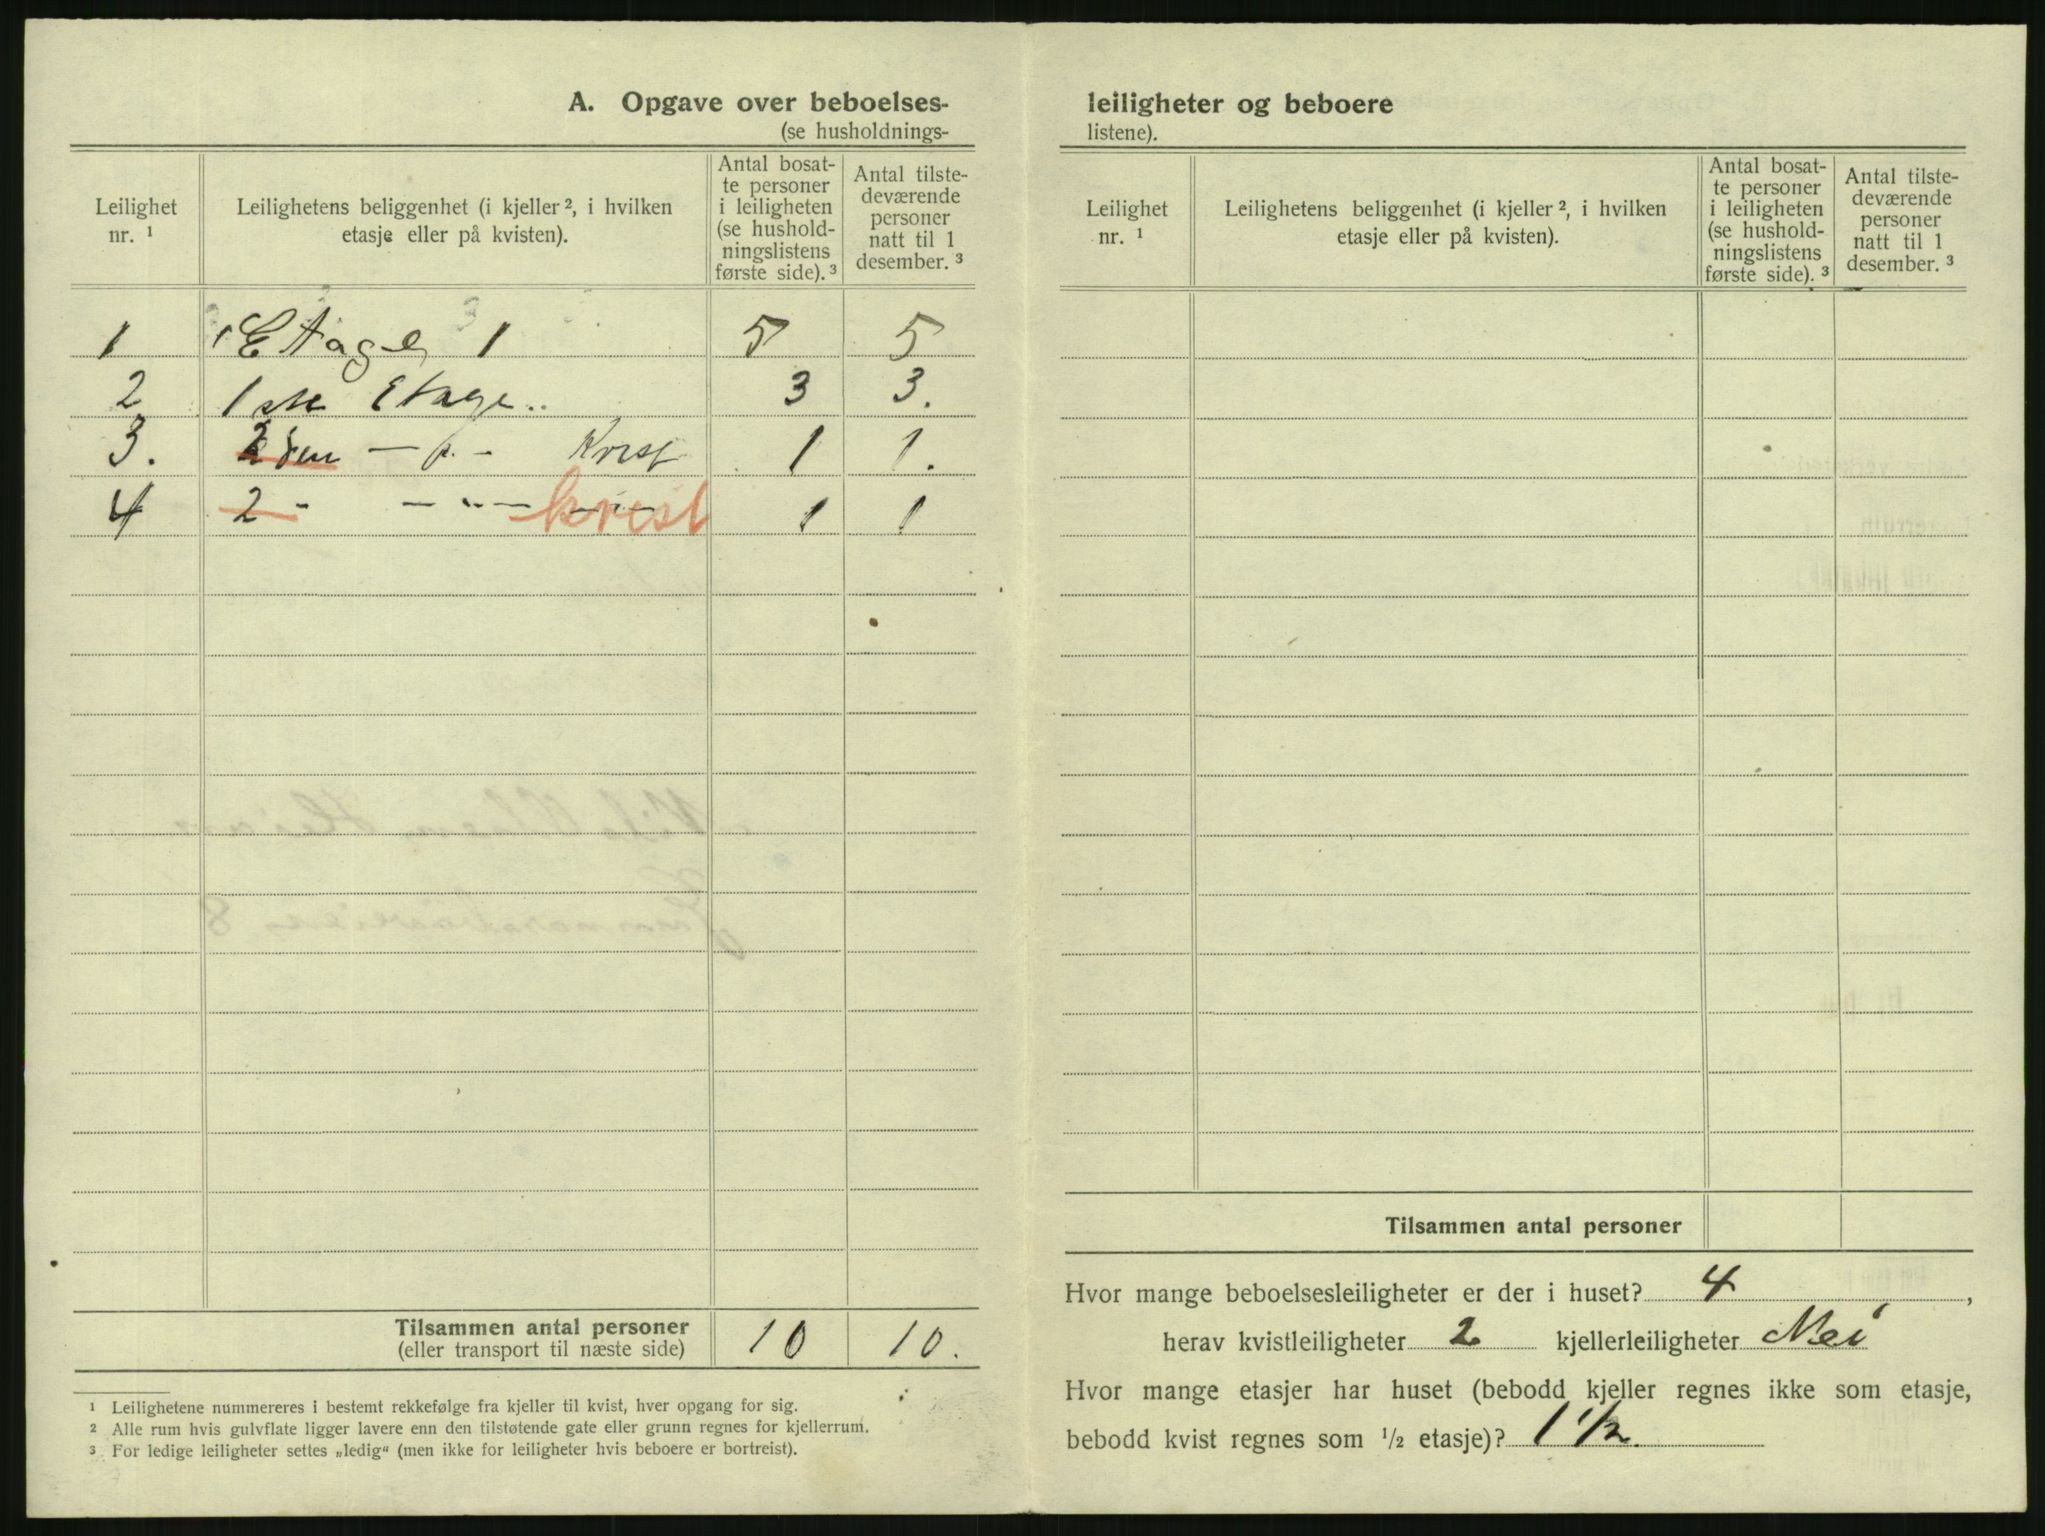 A. Opgave over beboelses-
(se husholdnings-
Leilighet
nr. ¹
Leilighetens beliggenhet (i kjeller ², i hvilken
etasje eller på kvisten).
Antal bosat-
te personer
i leiligheten
(se hushold-
ningslistens
første side). ³
Antal tilste-
deværende
personer
natt til 1
desember. ³
1 Etage 1 5 5
2 1ste Etage.. 3 3.
3. 2den — Kvist 1 1.
4 2 - — " — kvist 1 1
Tilsammen antal personer 10 10.
(eller transport til næste side)
¹ Leilighetene nummereres i bestemt rekkefølge fra kjeller til kvist, hver opgang for sig.
² Alle rum hvis gulvflate ligger lavere enn den tilstøtende gate eller grunn regnes for kjellerrum.
³ For ledige leiligheter settes „ledig“ (men ikke for leiligheter hvis beboere er bortreist).
leiligheter og beboere
listene).
Leilighet
nr. ¹
Leilighetens beliggenhet (i kjeller ², i hvilken
etasje eller på kvisten).
Antal bosat-
te personer
i leiligheten
(se hushold-
ningslistens
første side). ³
Antal tilste-
deværende
personer
natt til 1
desember. ³
Tilsammen antal personer
Hvor mange beboelsesleiligheter er der i huset? 4,
herav kvistleiligheter 2 kjellerleiligheter Nei
Hvor mange etasjer har huset (bebodd kjeller regnes ikke som etasje,
bebodd kvist regnes som ¹/₂ etasje)? 1 1/2.